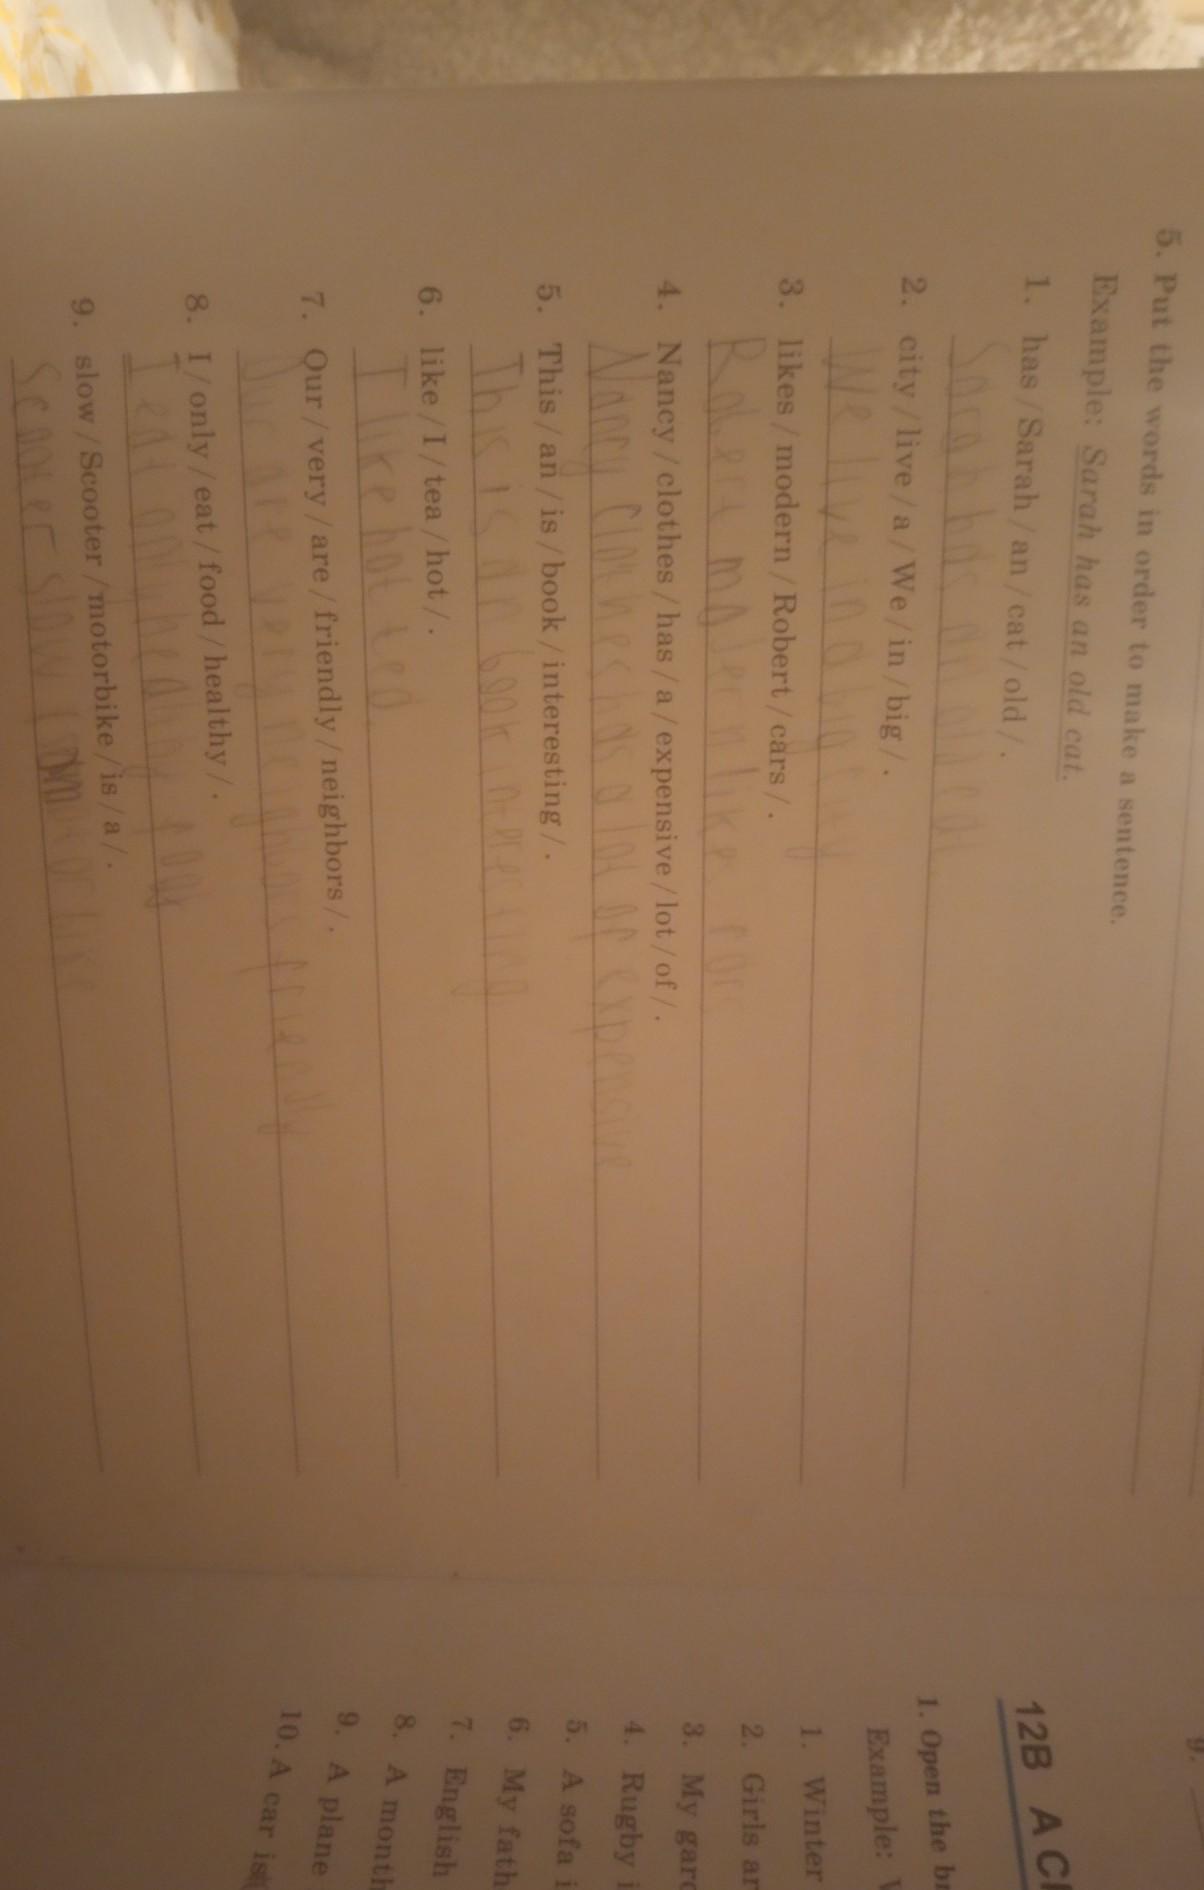 5. Put the words in order to make a sentence.
Example: Sarah has an old cat.
1. has / Sarah / an / cat / old / .
Sarah has an old cat.
2. city / live / a / We / in / big / .
We live in a big city
3. likes / modern / Robert / cars / .
Robert modern like car
4. Nancy / clothes / has / a / expensive / lot / of / .
Nancy clothes has a lot of expensive
5. This / an / is / book / interesting / .
This is an book interesting
6. like / I / tea / hot / .
I like hot tea.
7. Our / very / are / friendly / neighbors / .
Our are very neighbors friendly
8. I / only / eat / food / healthy / .
I eat only healthy food
9. slow / Scooter / motorbike / is / a / .
Scooter slow
9.
12B A
1. Open the
Example:
1. Winter
2. Girls
3. My
4. Rugby
5. A sofa
6. My
7. English
8. A
9. A plane
10. A car is